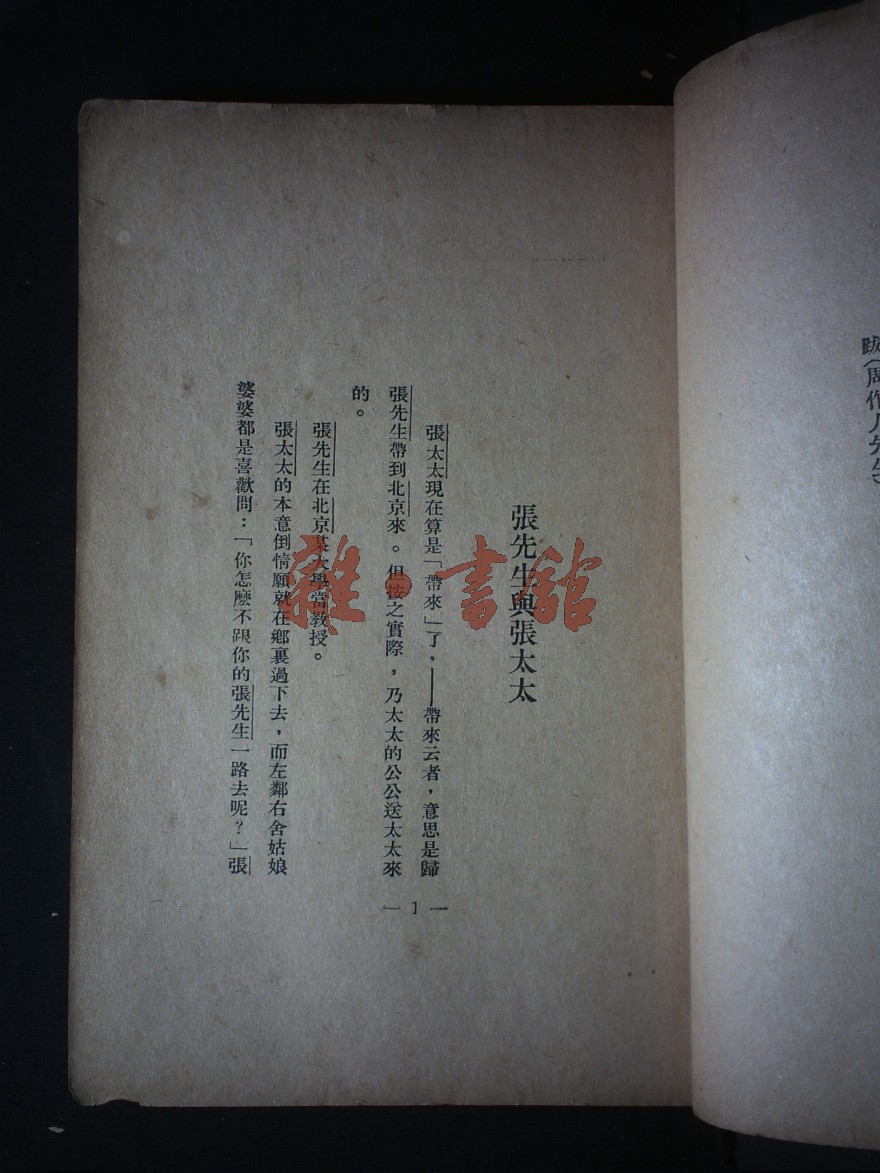 跋(周作人先生)
張先生與張太太
張太太現在算是「帶來」了,——帶來云者,意思是歸
張先生帶到北京來。但按之實際,乃太太的公公送太太來
的。
張先生在北京某大學當教授。
張太太的本意倒情願就在鄉裏過下去,而左鄰右舍姑娘
婆婆都是喜歡問:「你怎麼不跟你的張先生一路去呢?」張
— 1 —
雜·書館